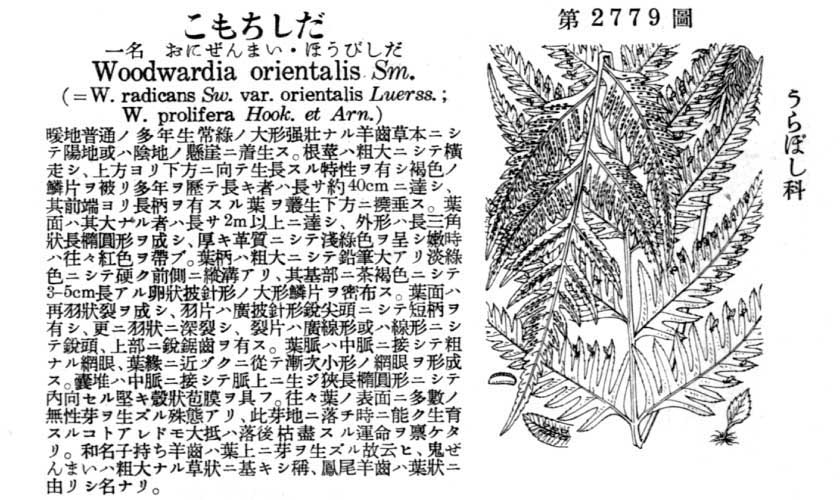 こもちしだ
一名 おにぜんまい・ほうびしだ
Woodwardia orientalis Sm.
(=W. radicans Sw. var. orientalis Luerss.;
W. prolifera Hook. et Arn.)
暖地普通ノ多年生常綠ノ大形强壯ナル羊齒草本ニシ
テ陽地或ハ陰地ノ懸崖ニ着生ス。根莖ハ粗大ニシテ橫
走シ、上方ヨリ下方ニ向テ生長スル特性ヲ有シ褐色ノ
鱗片ヲ被リ多年ヲ歷テ長キ者ハ長サ約40cmニ達シ、
其前端ヨリ長柄ヲ有スル葉ヲ叢生下方ニ撓垂ス。葉
面ハ其大ナル者ハ長サ2m以上ニ達シ、外形ハ長三角
狀長橢圓形ヲ成シ、厚キ革質ニシテ淺綠色ヲ呈シ嫩時
ハ往々紅色ヲ帶ブ。葉柄ハ粗大ニシテ鉛筆大アリ淡綠
色ニシテ硬ク前側ニ縱溝アリ、其基部ニ茶褐色ニシテ
3-5cm長アル卵狀披針形ノ大形鱗片ヲ密布ス。葉面ハ
再羽狀裂ヲ成シ、羽片ハ廣披針形銳尖頭ニシテ短柄ヲ
有シ、更ニ羽狀ニ深裂シ、裂片ハ廣線形或ハ線形ニシ
テ銳頭、上部ニ銳鋸齒ヲ有ス。葉脈ハ中脈ニ接シテ粗
ナル網眼、葉緣ニ近ヅクニ從テ漸次小形ノ網眼ヲ形成
ス。囊堆ハ中脈ニ接シテ脈上ニ生ジ狹長橢圓形ニシテ
內向セル堅キ殼狀苞膜ヲ具フ。往々葉ノ表面ニ多數ノ
無性芽ヲ生ズル殊態アリ、此芽地ニ落チ時ニ能ク生育
スルコトアレドモ大抵ハ落後枯盡スル運命ヲ禀ケタ
リ。和名子持ち羊齒ハ葉上ニ芽ヲ生ズル故云ヒ、鬼ぜ
んまいハ粗大ナル草狀ニ基キシ稱、鳳尾羊齒ハ葉狀ニ
由リシ名ナリ。
第2779圖
うらぼし科